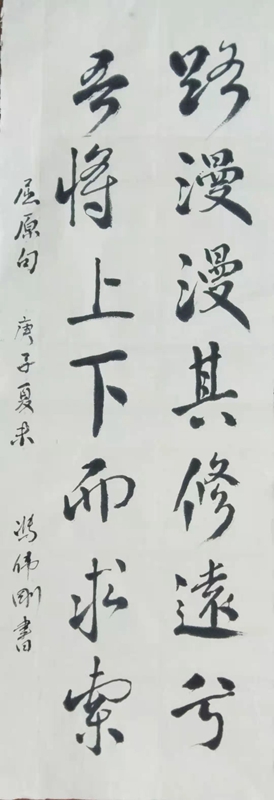 路漫漫其修遠兮
吾将上下而求索
屈原句 庚子夏末 馮偉剛書